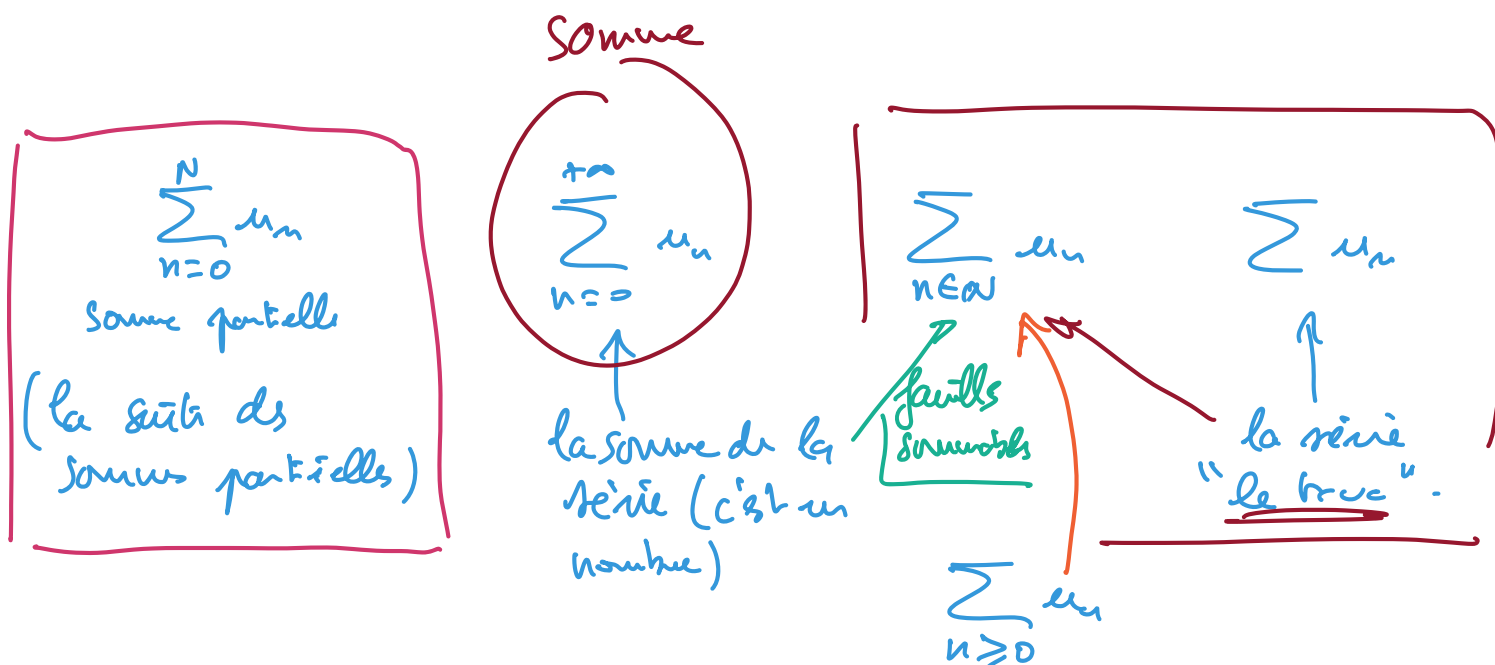 Somme
N
∑ uₙ
n=0
somme partielle
(la suite des
sommes partielles)
+∞
∑ uₙ
n=0
la somme de la
série (c'est un
nombre)
∑ uₙ
n∈ℕ
familles
sommables
∑ uₙ
la série
"le truc".
∑ uₙ
n⩾0